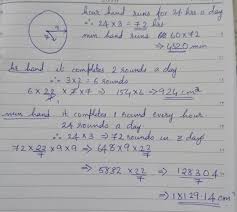 hour hand runs for 24 hrs a day
∴ 24 x 3 = 72 hrs
min hand runs 60 x 72
⇒ 4320 min
hr hand it completes 2 rounds a day
∴ 3 x 2 = 6 rounds
6 x 22/7 x 7 x 7 ⇒ 154 x 6 ⇒ 924 cm²
min hand. it completes 1 round every hour
24 rounds a day
∴ 24 x 3 ⇒ 72 rounds in 3 days
72 x 22/7 x 9 x 9 ⇒ 648 x 9 x 22/7
⇒ 5832 x 22/7 ⇒ 128304/7
⇒ 18329.14 cm²